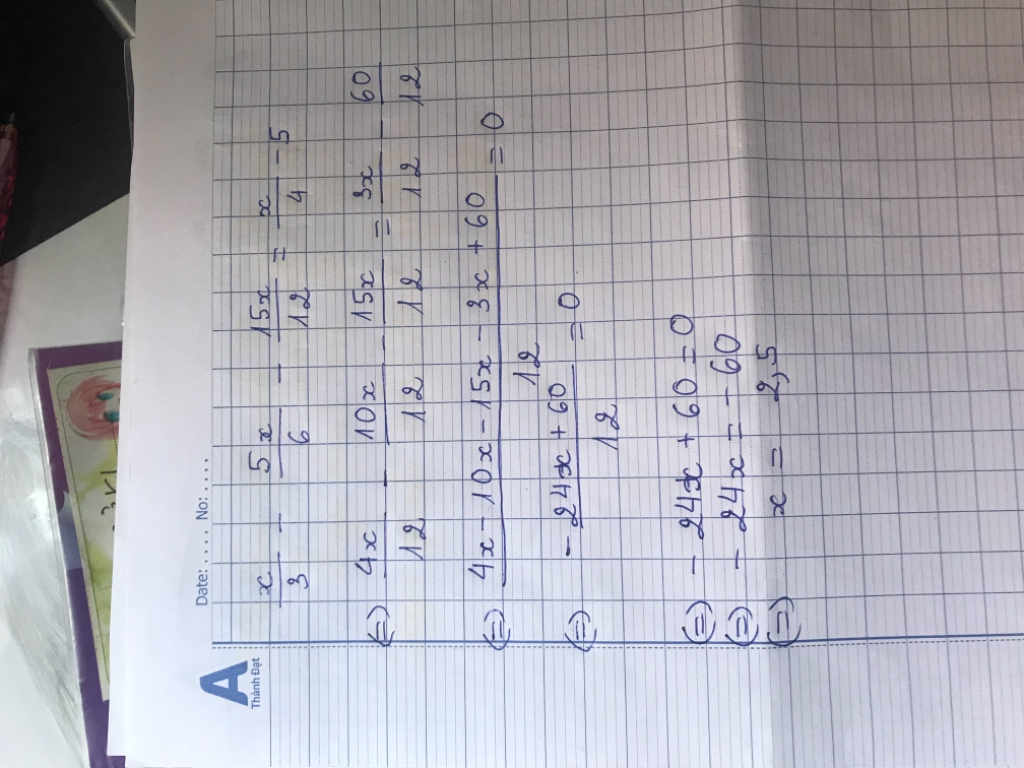 A
Thành Đạt
Date: ..... No: .....
x/3 - 5x/6 - 15x/12 = x/4 - 5
(=) 4x/12 - 10x/12 - 15x/12 = 3x/12 - 60/12
(=) (4x - 10x - 15x - 3x + 60)/12 = 0
(=) (-24x + 60)/12 = 0
(=) -24x + 60 = 0
(=) -24x = -60
(=) x = 2,5